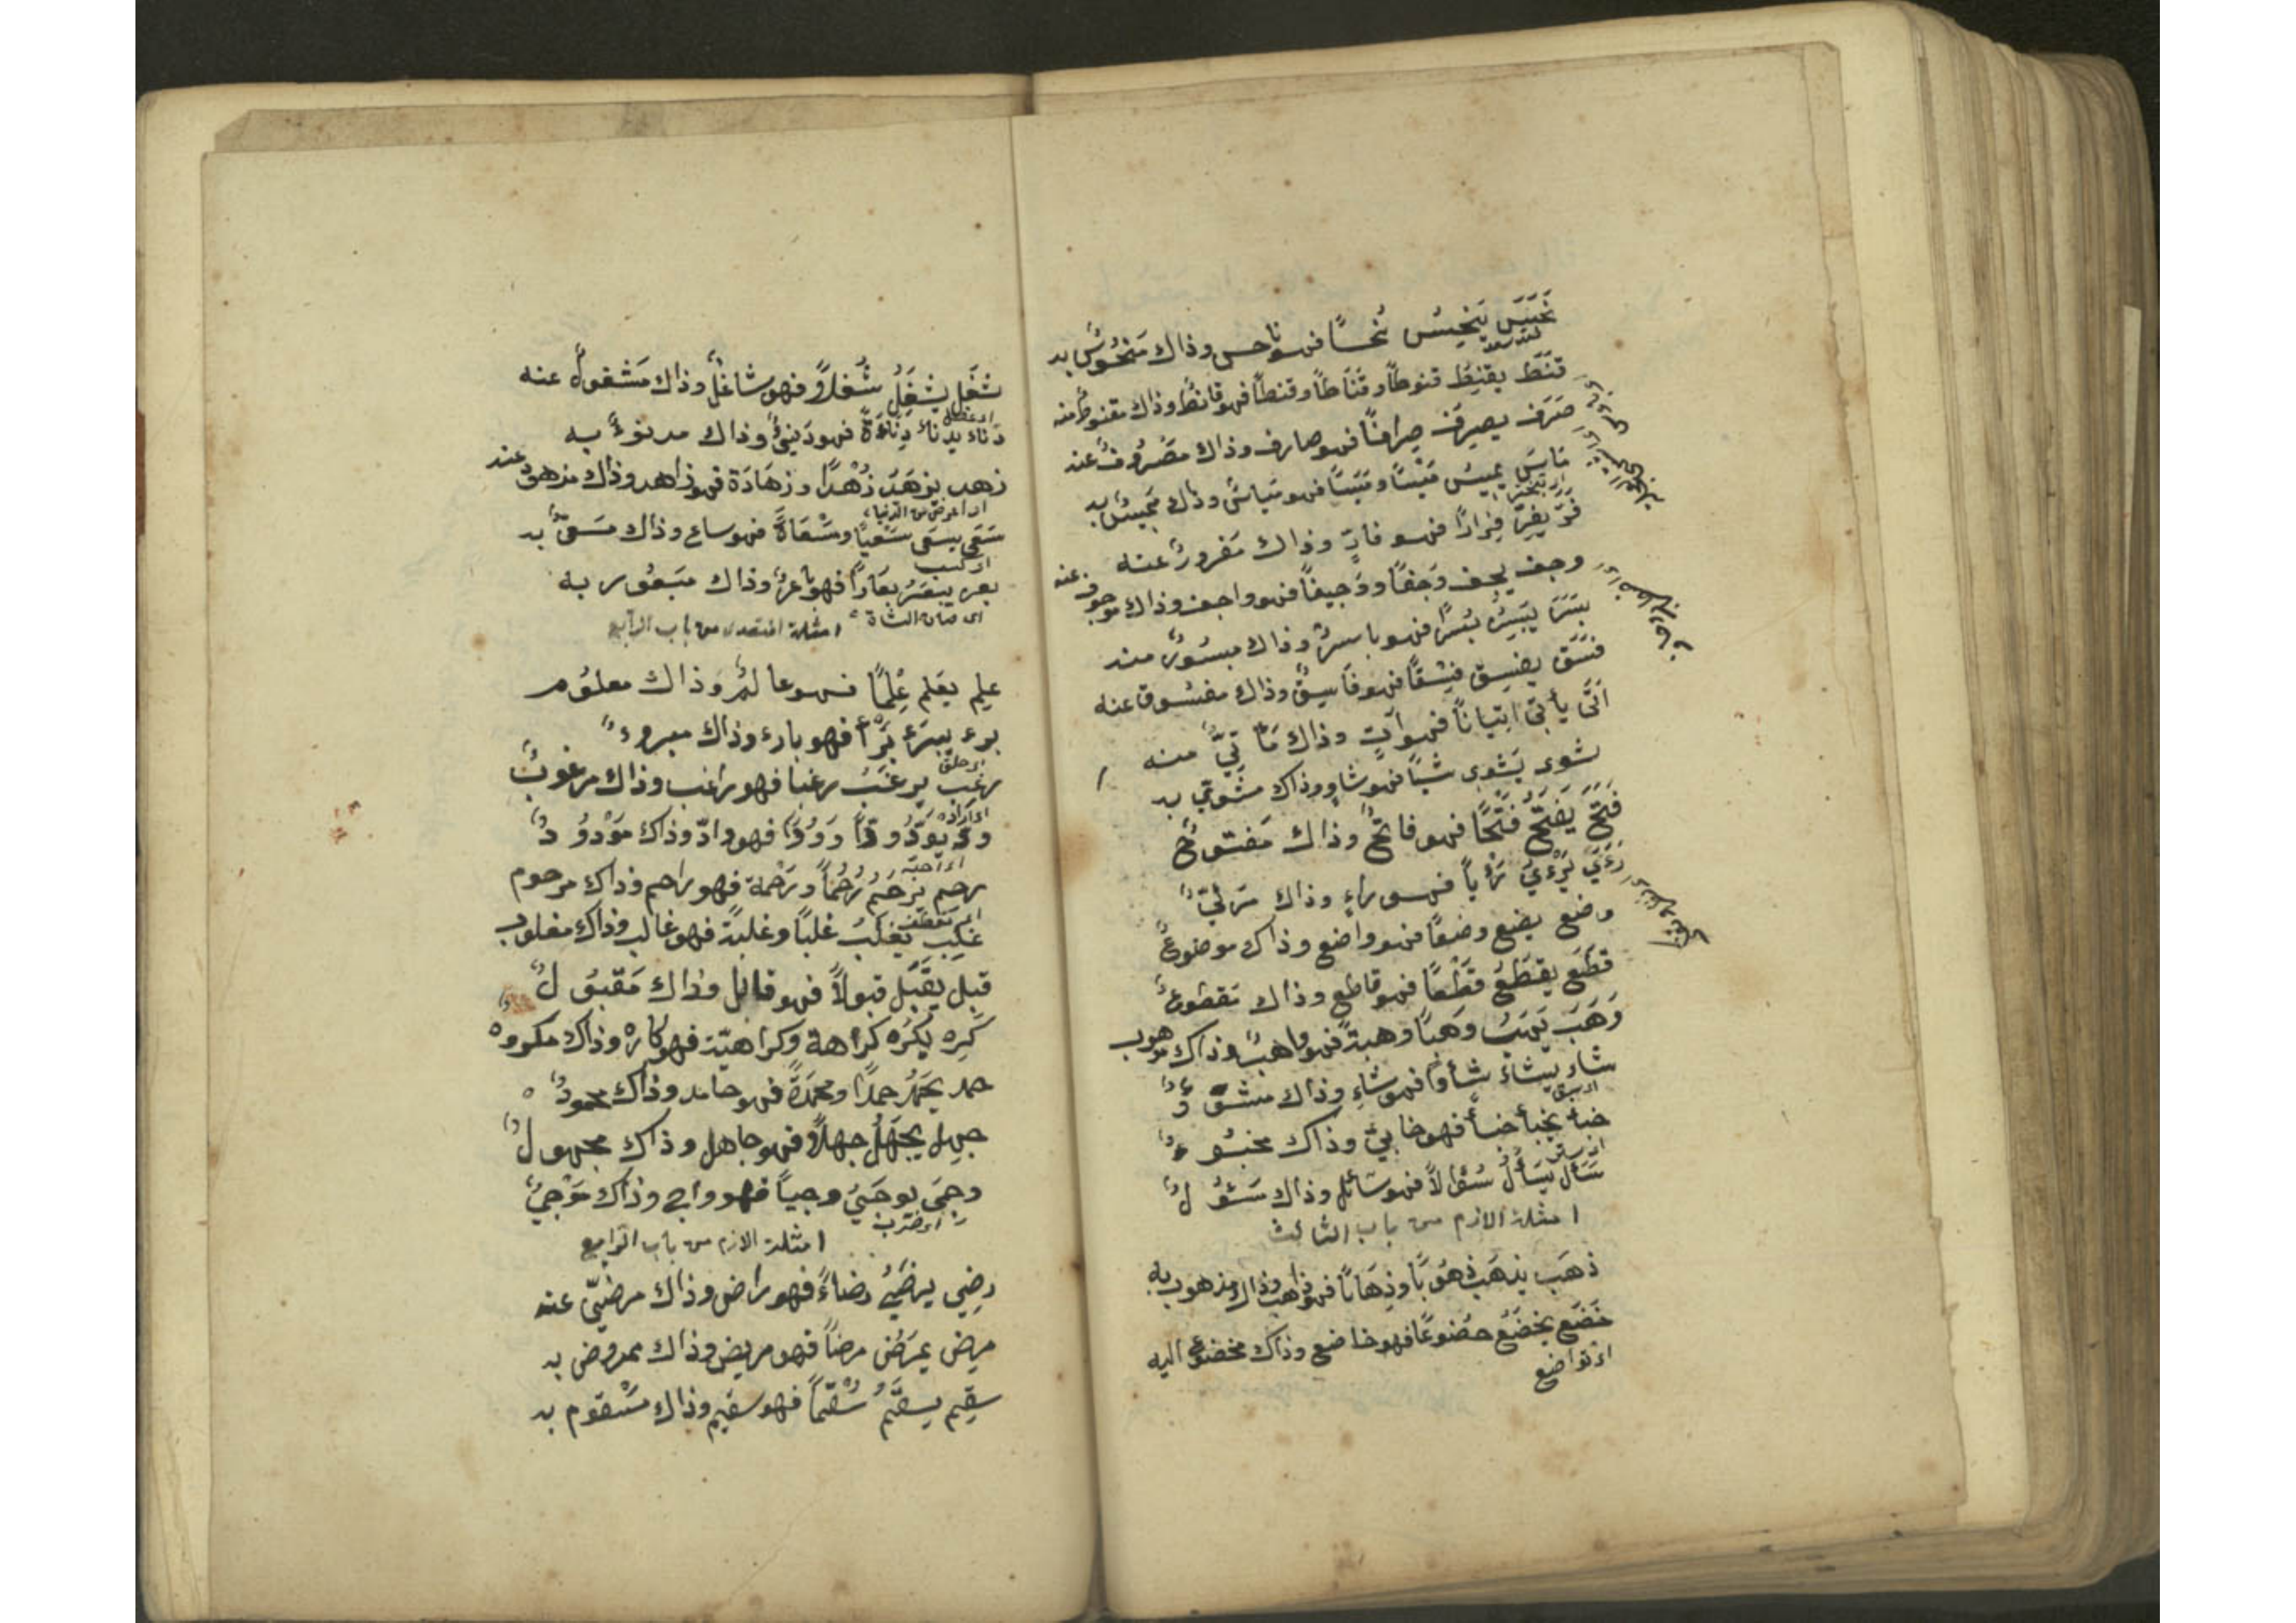 نَخَسَ يَنْخِسُ نُخسًا فهو ناحس وذاك مَنْخُوسٌ به
قَنَطَ يقنِطُ قنوطًا وقَنَاطًا وقنطًا فهو قانطٌ وذاك مقنوطٌ منه
صَرَف يصرِف صِرافًا فهو صارف وذاك مَصْرُوفٌ عنه
مَاسَ يميسُ مَيْسًا ومَيَسًا فهو مَيَاسٌ وذاك مَمِيسٌ به
اى تبختر
فرّ يفِرّ فِرارًا فهو فارٌّ وذاك مَفرورٌ عنه
وجف يجف وَجفًا ووَجيفًا فهو واجف وذاك موجوف عنه
بَسَرَ يَبْسِرُ بُسْرًا فهو باسرٌ وذاك مبسُورٌ منه
فسَقَ يفسِق فِسْقًا فهو فَاسِقٌ وذاك مفسُوق عنه
أتَى يأتِى إتيانًا فهو آتٍ وذاك مَاْتِيٌّ منه
شوى يَشوِى شيًا فهو شاوٍ وذاك مشوِىّ به
فَتَحَ يَفتَحُ فَتْحًا فهو فاتحٌ وذاك مَفتوحٌ
رَءَىَ يَرْءَىُ رَءْيًا فهو راءٍ وذاك مَرئىٌّ
وضع يضع وضعًا فهو واضع وذاك موضوعٌ
قَطَعَ يقطَعُ قَطْعًا فهو قاطع وذاك مَقطوعٌ
وَهَبَ يَهَبُ وَهبًا وهبةً فهو واهبٌ وذاك موهوب
شاء يشاءُ شأوًا فهو شاءٍ وذاك مشوٌّ
خبأ يخبأ خبأً فهو خابئ وذاك مخبوءٌ
سَأل يَسْأَلُ سُؤَالاً فهو سَائل وذاك مَسْئُولٌ
امثلة الازم من باب الثالث
ذهَب يذهَب ذهُوبًا وذِهَابًا فهو ذاهب وذاك مذهوب به
خَضَع يخضَعُ خضوعًا فهو خاضع وذاك مخضوع اليه
اى تواضع
شغَل يشْغَلُ شُغلاً فهو شاغلٌ وذاك مَشغولٌ عنه
دناء يدناءُ دِنَاءَةً فهو دَنِيءٌ وذاك مدنوءٌ به
زهد يزهَدُ زُهْدًا وزهَادَة فهو زاهد وذاك مزهود عنه
اى اعرض من الدنيا
سَعَى يسعَى سَعْيًا ومَسْعَاةً فهو ساع وذاك مَسعىٌّ به
اى كسب
يعر ييعَرُ يعَارًا فهو ياعرٌ وذاك ميعُور به
اى صات الشاة امثلة المتعدى من باب الرابع
علِم يعَلم عِلمًا فهو عالمٌ وذاك معلوم
برء يبرَءُ بَرْأً فهو بارء وذاك مبروءٌ
رغب يرغَبُ رغبا فهو راغب وذاك مرغوبٌ
اى اراد
ودّ يوَدُّ ودًّا ووُدًّا فهو وادّ وذاك مَوْدودٌ
اى احبه
رحِم يرحَمُ رُحُمًا ورَحْمة فهو راحم وذاك مرحوم
اى تعطّف
غَلِبَ يغلَبُ غلبًا وغلبةً فهو غالب وذاك مغلوب
قبِل يقَبَل قبولاً فهو قابل وذاك مَقبولٌ
كَرِه يَكرَه كراهة وكراهيّة فهو كاره وذاك مكروه
حمد يحمَدُ حمدًا ومحمَدةً فهو حامد وذاك محمودٌ
جهِل يجهَلُ جهلاً فهو جاهل وذاك مجهولٌ
وجِىَ يوجَىُ وجيًا فهو واجٍ وذاك مَوْجىٌّ
امثلة الازم من باب الرابع
رضِي يرضَىُ رضاءً فهو راض وذاك مرضىّ عنه
مرِض يمرَضُ مرضًا فهو مريض وذاك ممروض به
سقِم يسقَمُ سُقمًا فهو سقيم وذاك مَسْقوم به